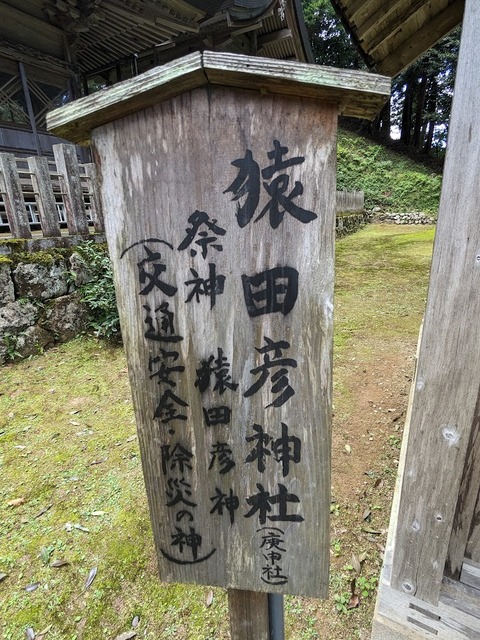 猿田彦神社(庚申社)
祭神 猿田彦神
(交通安全・除災の神)